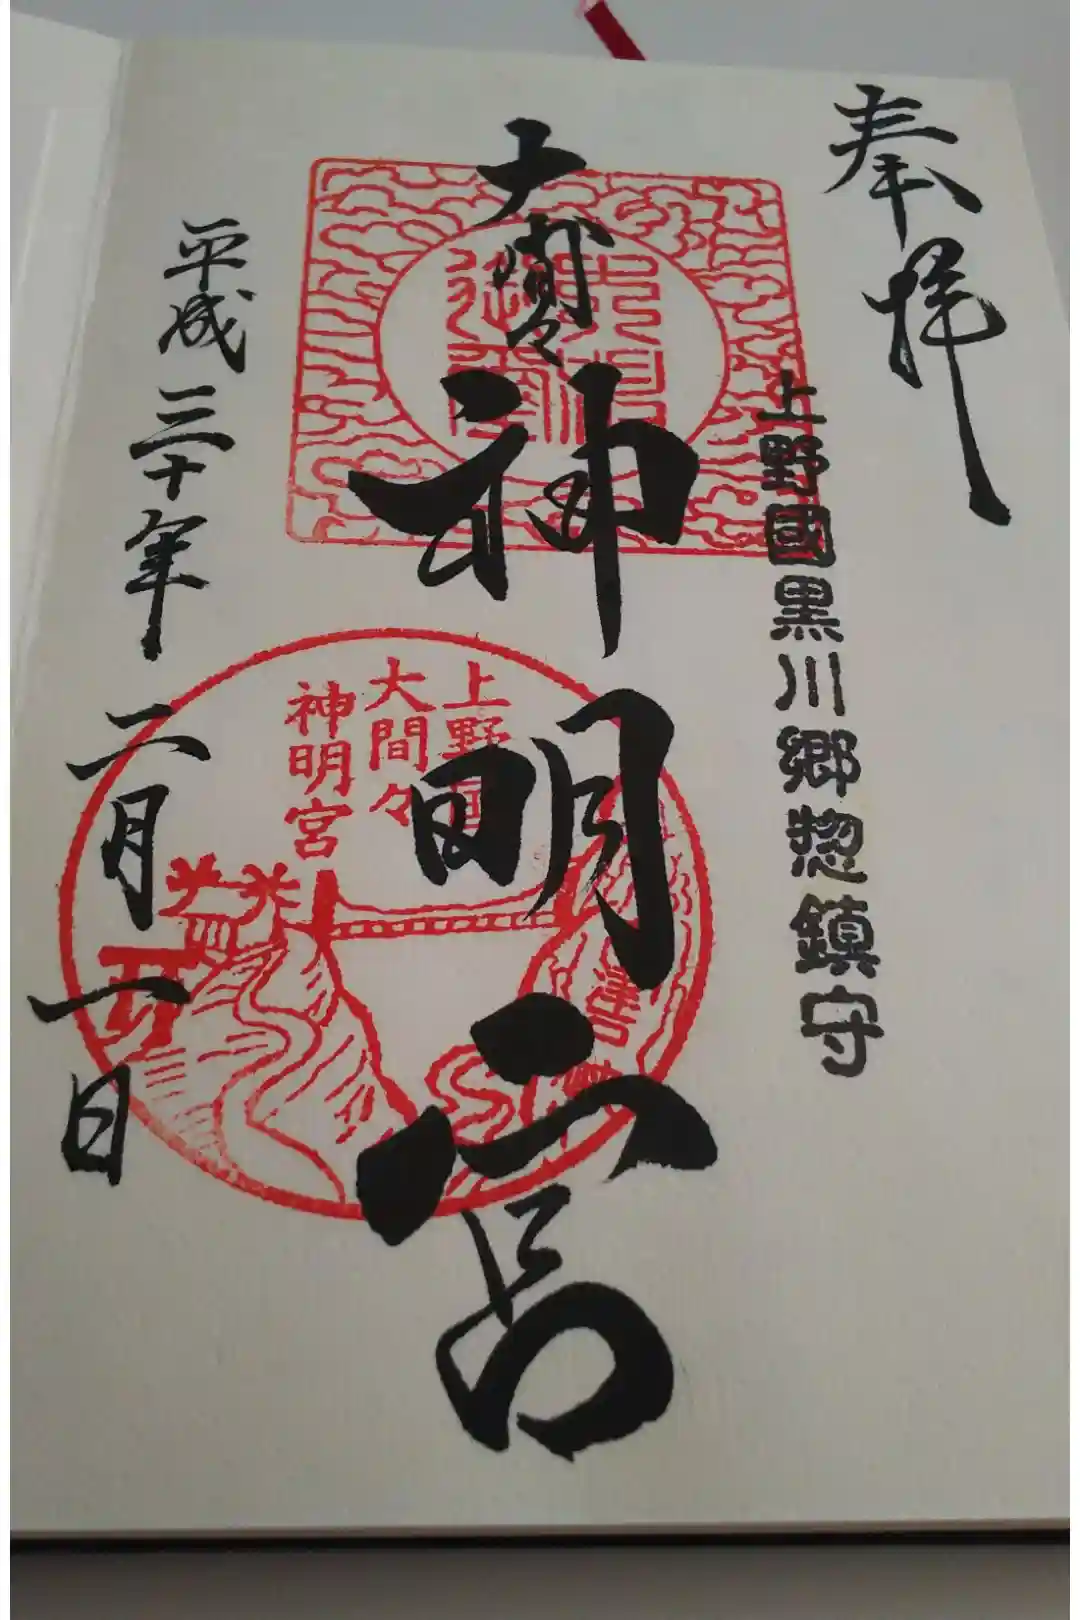 奉拝
上野國黒川郷惣鎮守
大間々
神明宮
上野國
大間々
神明宮
平成三十年二月一日